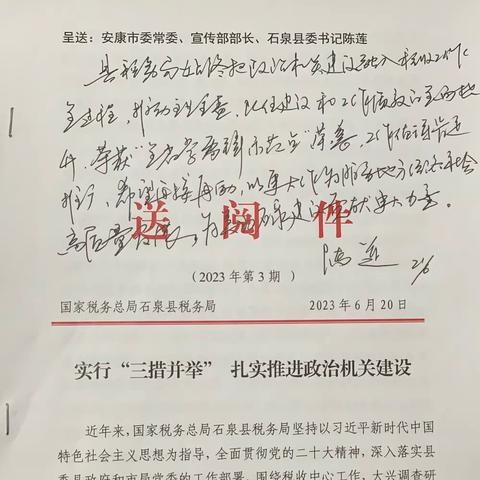 呈送：安康市委常委、宣传部部长、石泉县委书记陈莲
县税务局始终把政治机关建设融入税收现代化
全过程，
荣获“全省学雷锋示范点”荣誉，工作值得肯定
希望再接再励，以更大作为服务地方经济社会
高质量发展，为
送阅件
陈莲 26/6
（2023年第3期）
国家税务总局石泉县税务局 2023年6月20日
实行“三措并举” 扎实推进政治机关建设
近年来，国家税务总局石泉县税务局坚持以习近平新时代中国
特色社会主义思想为指导，全面贯彻党的二十大精神，深入落实县
委县政府和市局党委的工作部署，围绕税收中心工作，大兴调查研